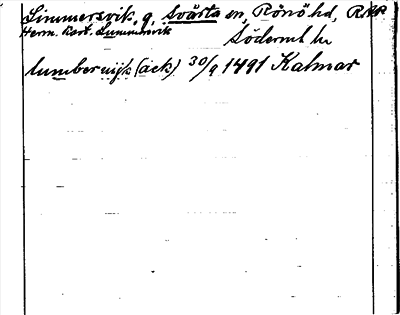 Limmersvik, g, Svärta sn, Rönö hd,
Herm. Kart. Lummervik Söderml. ln
lumberuijk (ack) 30/9 1491 Kalmar